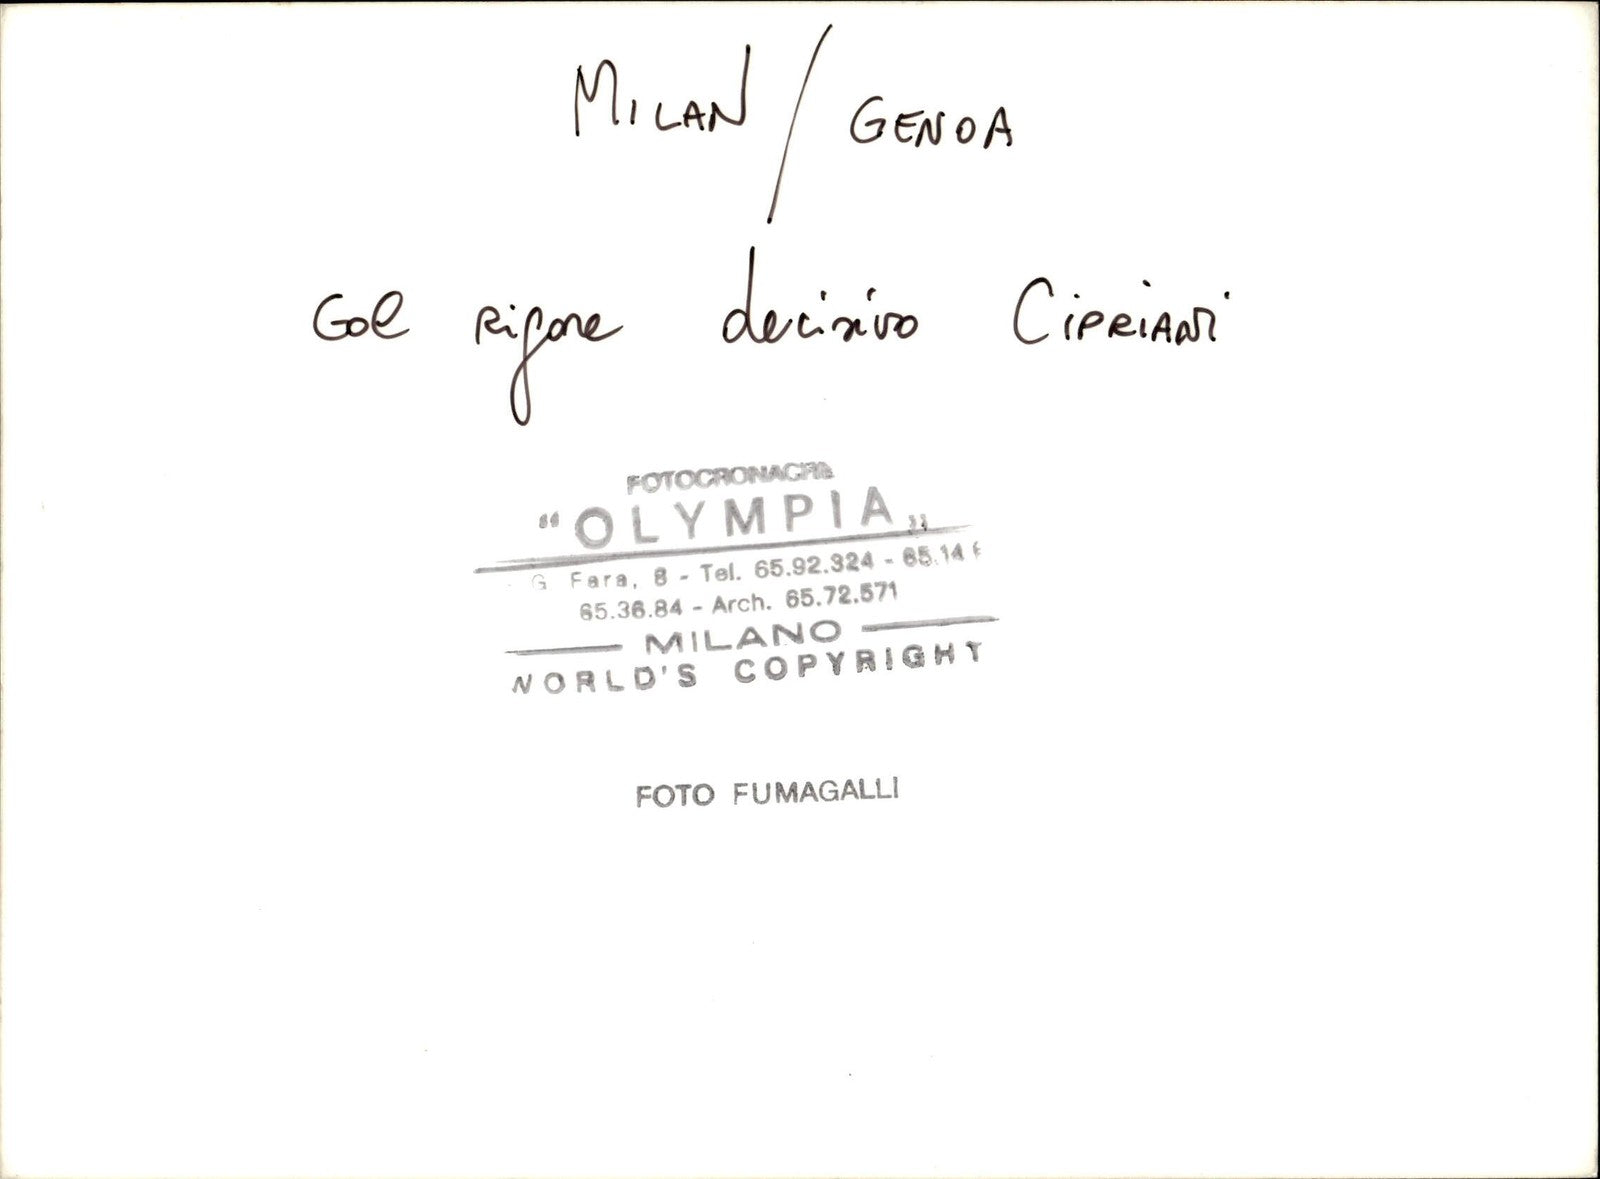 MILAN / GENOA
Gol rigore decisivo CIPRIANI
FOTOCRONACHE
"OLYMPIA"
G. Fara, 8 - Tel. 65.92.324 - 65.14
65.36.84 - Arch. 65.72.571
MILANO
WORLD'S COPYRIGHT
FOTO FUMAGALLI